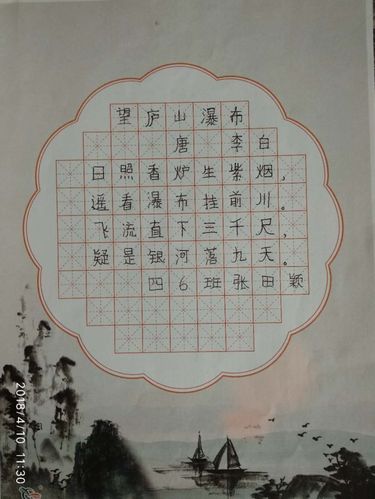 望庐山瀑布
唐 李白
日照香炉生紫烟，
遥看瀑布挂前川。
飞流直下三千尺，
疑是银河落九天。
四6班张田颖
2018/4/10 11:30